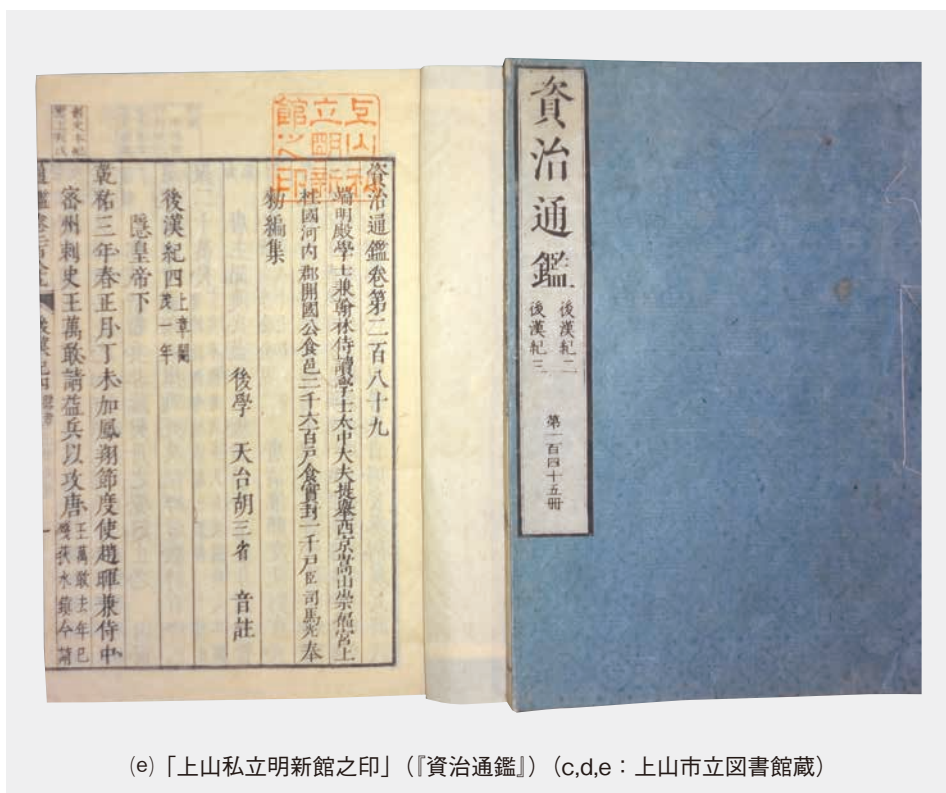 資治通鑑
後漢紀二
後漢紀三
第一百四十五冊
上山私
立明新
館之印
資治通鑑卷第二百八十九
端明殿學士兼翰林侍讀學士太中大夫提舉西京嵩山崇福宮上
柱國河內郡開國公食邑二千六百戶食實封一千戶臣司馬光奉
勑編集
後學 天台胡三省 音註
後漢紀四 上章閹茂一年
隱皇帝下
乾祐三年春正月丁未加鳳翔節度使趙暉兼侍中
密州刺史王萬敢請益兵以攻唐 王萬敢去年已
荻水鎮今請
(e)「上山私立明新館之印」（『資治通鑑』）（c,d,e：上山市立図書館蔵）